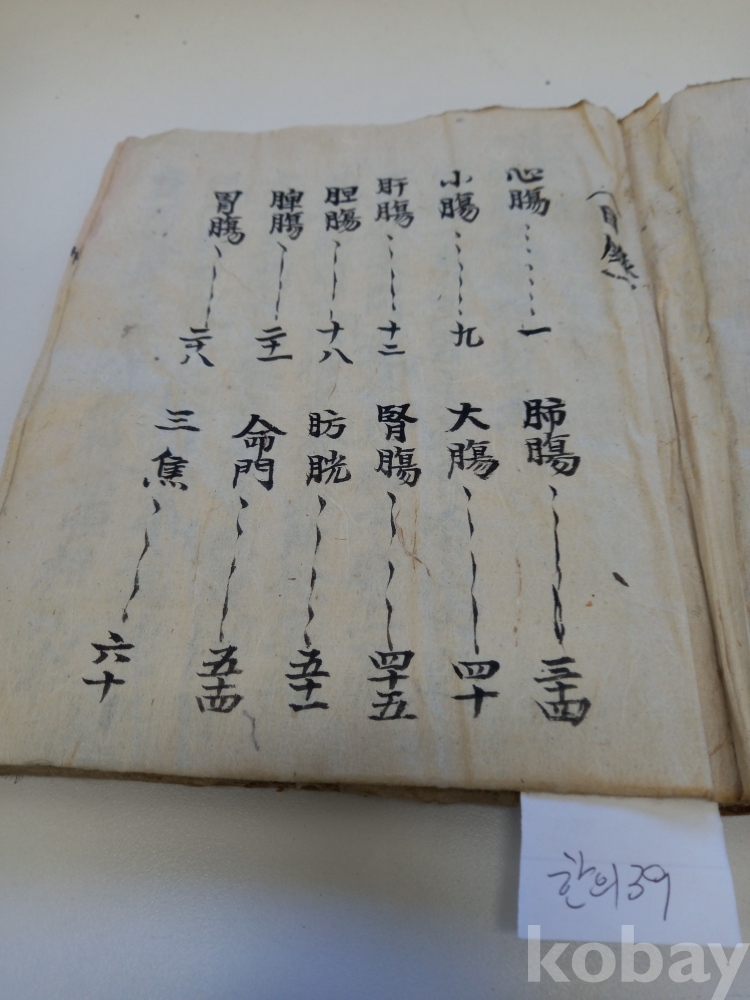 目錄
心腸 一
小腸 九
肝腸 十二
胆腸 十八
脾腸 二十一
胃腸 二十八
肺腸 三十四
大腸 四十
腎腸 四十五
肪胱 五十一
命門 五十四
三焦 六十
한의39
kobay